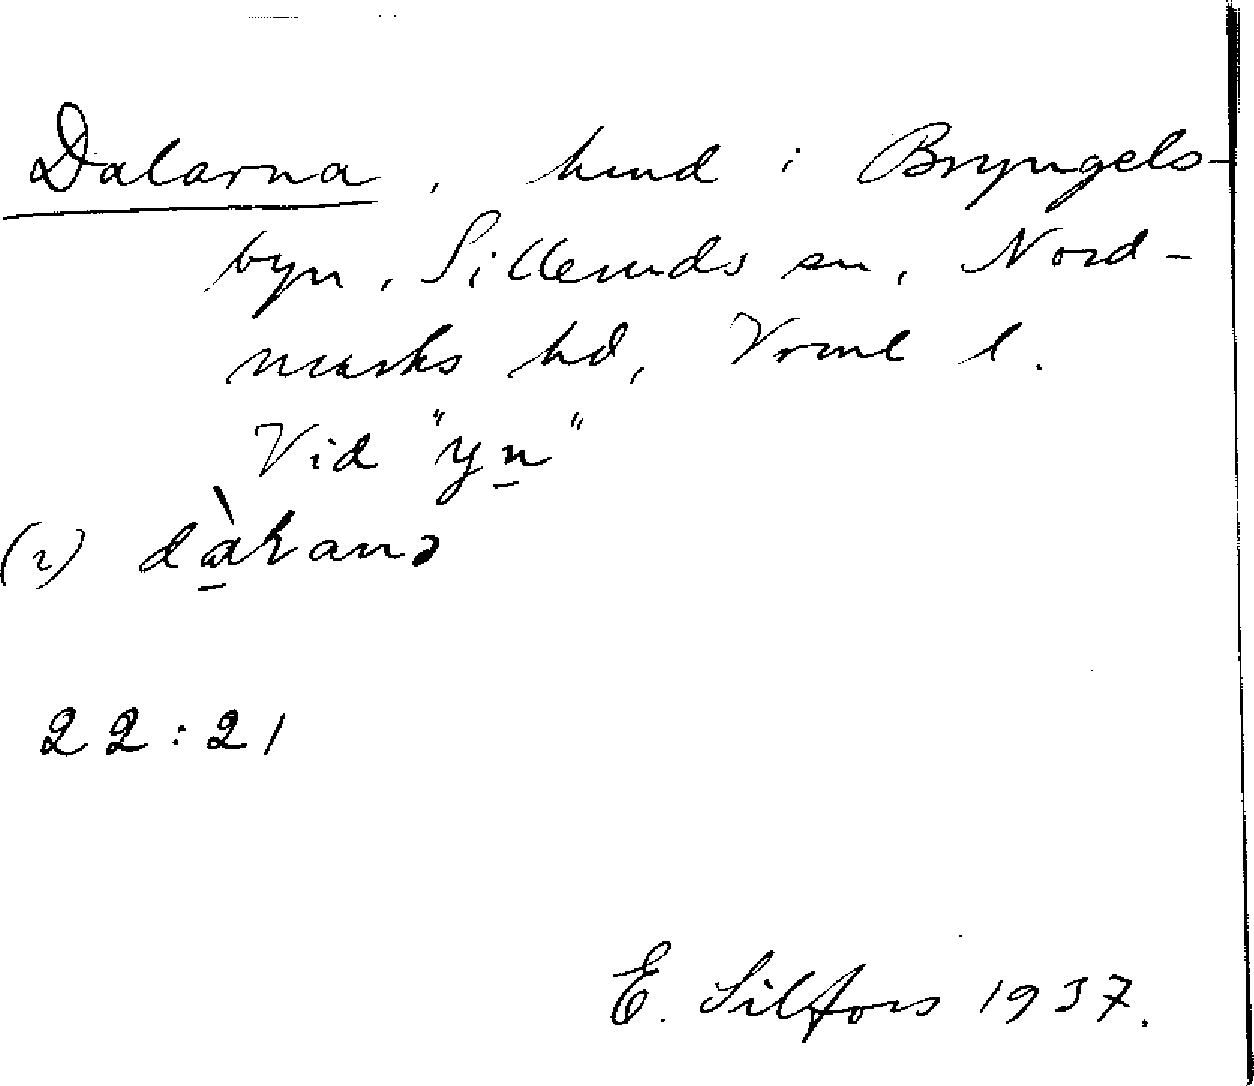 Dalarna, hmd i Bryngels-
byn, Silleruds sn, Nord-
marks hd, Vrml l.
Vid "yn"
(2)
22:21
E. Silfors 1937.